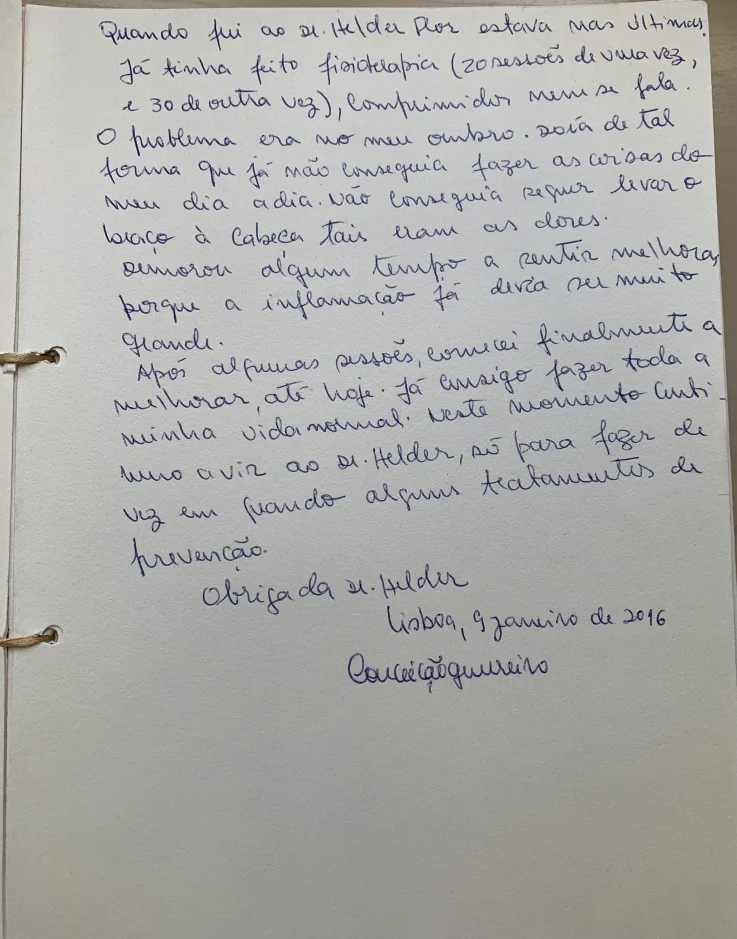 Quando fui ao Dr. Helder Flor estava nas ultimas.
Já tinha feito fisioterapia (20 sessões de uma vez,
e 30 de outra vez), comprimidos nem se fala.
O problema era no meu ombro. Doía de tal
forma que já não conseguia fazer as coisas do
meu dia a dia. Não conseguia sequer levar o
braço à cabeça tais eram as dores.
Demorou algum tempo a sentir melhoras,
porque a inflamação já devia ser muito
grande.
Após algumas sessões, comecei finalmente a
melhorar, até hoje. Já consigo fazer toda a
minha vida normal. Neste momento conti-
nuo a vir ao Dr. Helder, só para fazer de
vez em quando alguns tratamentos de
prevenção.
Obrigada Dr. Helder
Lisboa, 9 janeiro de 2016
Conceição guerreiro